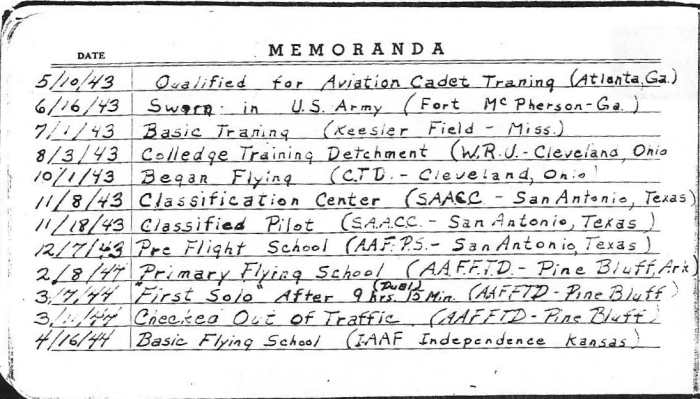 DATE MEMORANDA
5/10/43 Qualified for Aviation Cadet Traning (Atlanta, Ga.)
6/16/43 Sworn in U.S. Army (Fort McPherson-Ga.)
7/1/43 Basic Traning (Keesler Field - Miss.)
8/3/43 Colledge Training Detchment (W.R.U.-Cleveland, Ohio
10/1/43 Began Flying (C.T.D. - Cleveland, Ohio)
11/8/43 Classification Center (SAACC - San Antonio, Texas)
11/18/43 Classified Pilot (S.A.A.C.C. - San Antonio, Texas)
12/7/43 Pre Flight School (A.A.F.P.S. - San Antonio, Texas)
2/8/44 Primary Flying School (A.A.F.F.T.D. - Pine Bluff, Ark)
3/7/44 "First Solo" After 9 hrs. (Dual) 15 Min. (AAFFTD - Pine Bluff)
Checked Out of Traffic (AAFFTD - Pine Bluff)
4/16/44 Basic Flying School (IAAF Independence Kansas)